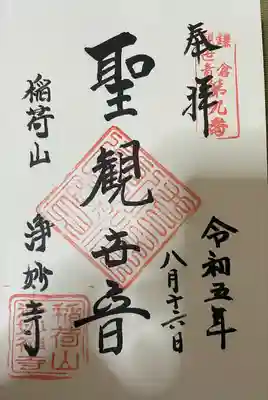 奉拝
鎌倉第九番
令和五年
八月十六日
聖観世音
稲荷山 浄妙寺
稲荷山